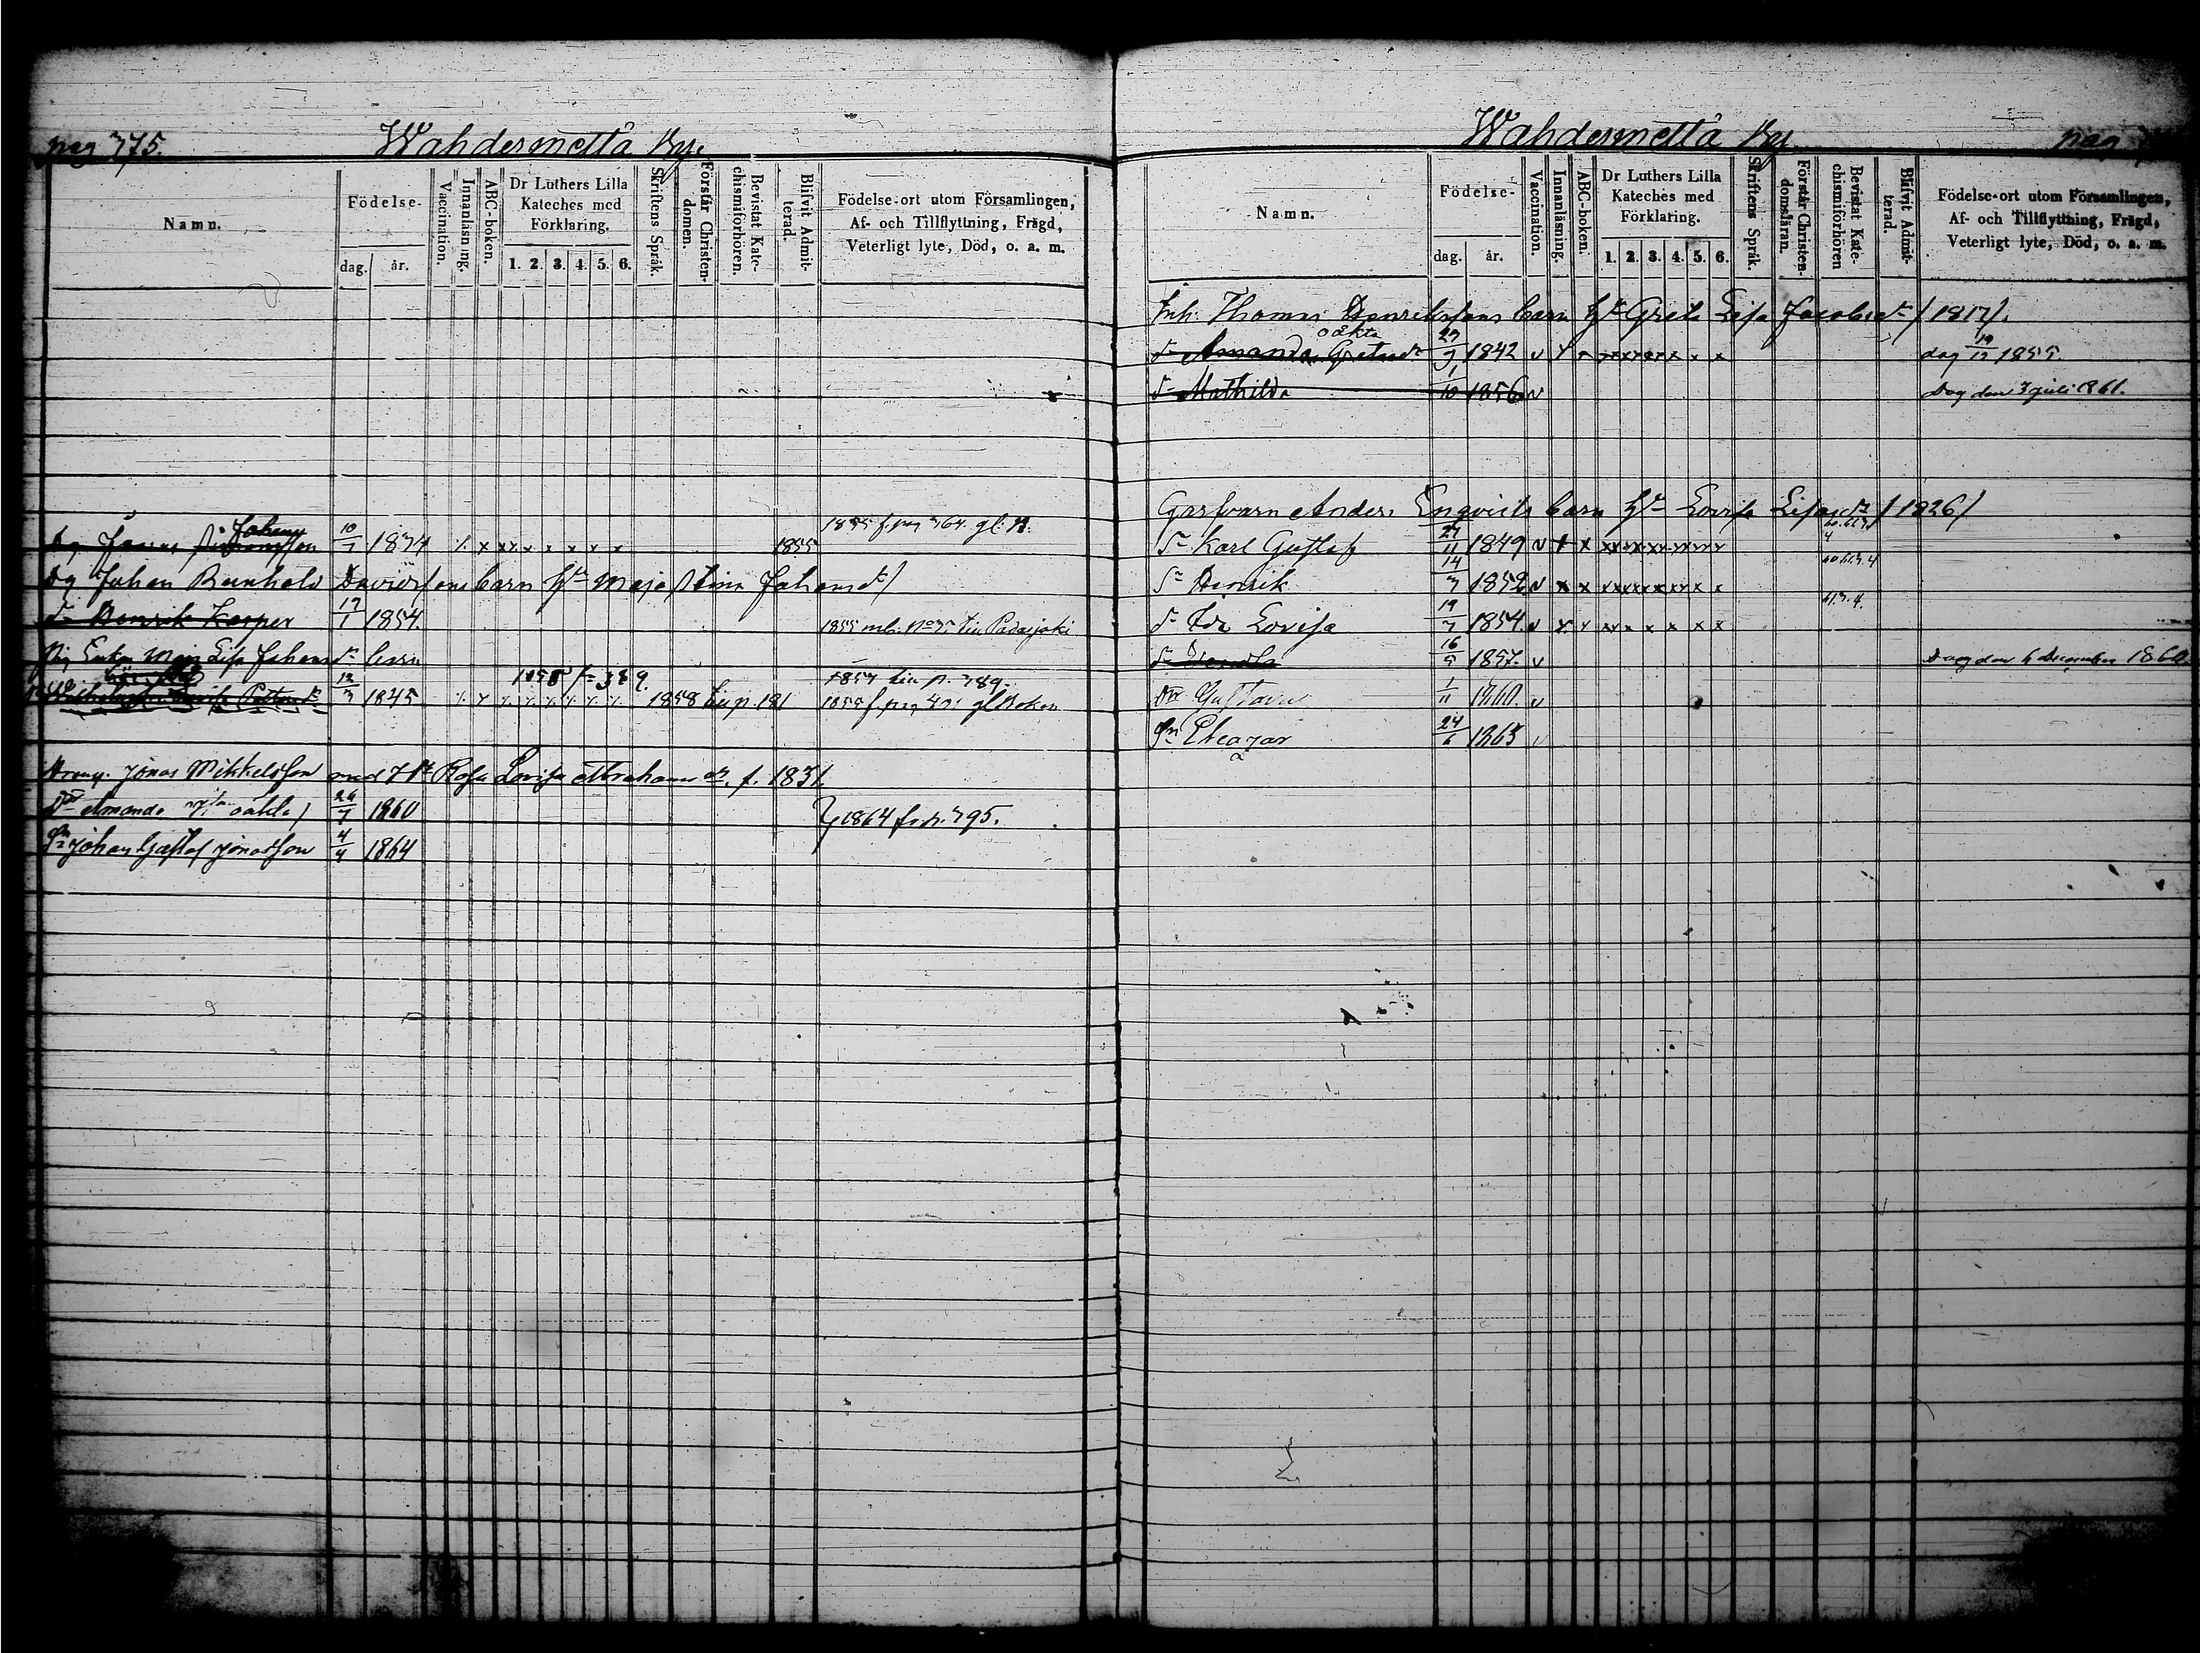 pag 375.
Wahdermetta By.
Namn.
Födelse-
dag.
år.
Vaccination.
Innanläsning.
ABC-boken.
Dr Luthers Lilla Kateches med Förklaring.
1. 2. 3. 4. 5. 6.
Skriftens Språk.
Förstår Christendomen.
Bevistat Katechismiförhören.
Blifvit Admitterad.
Födelse-ort utom Församlingen,
Af- och Tillflyttning, Frägd,
Veterligt lyte, Död, o. a. m.
Johans
10/7 1834 x x x x x x x 1855 1855 f. pag 364. gl. B.
Dg Johan Reinhold Davidssons barn h. Maja Stina Johansdr)
S. Henrik Kasper 17/1 1854. 1855 mb. No 35 till Padasjoki
Enkan Maja Lisa Johansdr barn
1858 f. 389. 1857 till p. 389.
12/3 1845 1858 till p. 181 1855 f. pag gl Boken
Jonas Mikkelsson med h. Rosa Lovisa Abrahamsdr. f. 1831.
Dr Amanda oäkta) 26/7 1860 1864 fr. p. 395.
Sn Johan Gustaf Jonasson 4/4 1864
Wahdermetta By.
pag
Namn.
Födelse-
dag.
år.
Vaccination.
Innanläsning.
ABC-boken.
Dr Luthers Lilla Kateches med Förklaring.
1. 2. 3. 4. 5. 6.
Skriftens Språk.
Förstår Christendomsläran.
Bevistat Katechismiförhören
Blifvit Admitterad.
Födelse-ort utom Församlingen,
Af- och Tillflyttning, Frägd,
Veterligt lyte, Död, o. a. m.
Inh. Thomas Henrikssons barn h. Greta Lisa Jacobsdr (1817).
oäkta
d. Amanda Gretasdr 27/9 1842 v x x x x x x x dog 19/12 1855.
d. Mathilda 1/10 1856 v Dog den 3 juli 1861.
Garfvarn Anders Enqvists barn h. Lovisa Lisasdr (1826)
S. Karl Gustaf 27/11 1849 v x x x x x x x x
S. Henrik 14/3 1852 v x x x x x x x x 60.61.3.4
d. Ida Lovisa 19/7 1854. v x x x x x x x x 61.3.4.
16/5 1857. v Dog den 6 December 1860.
Dr Gustava 1/11 1860. v
Sn Eleazar 24/6 1863 v